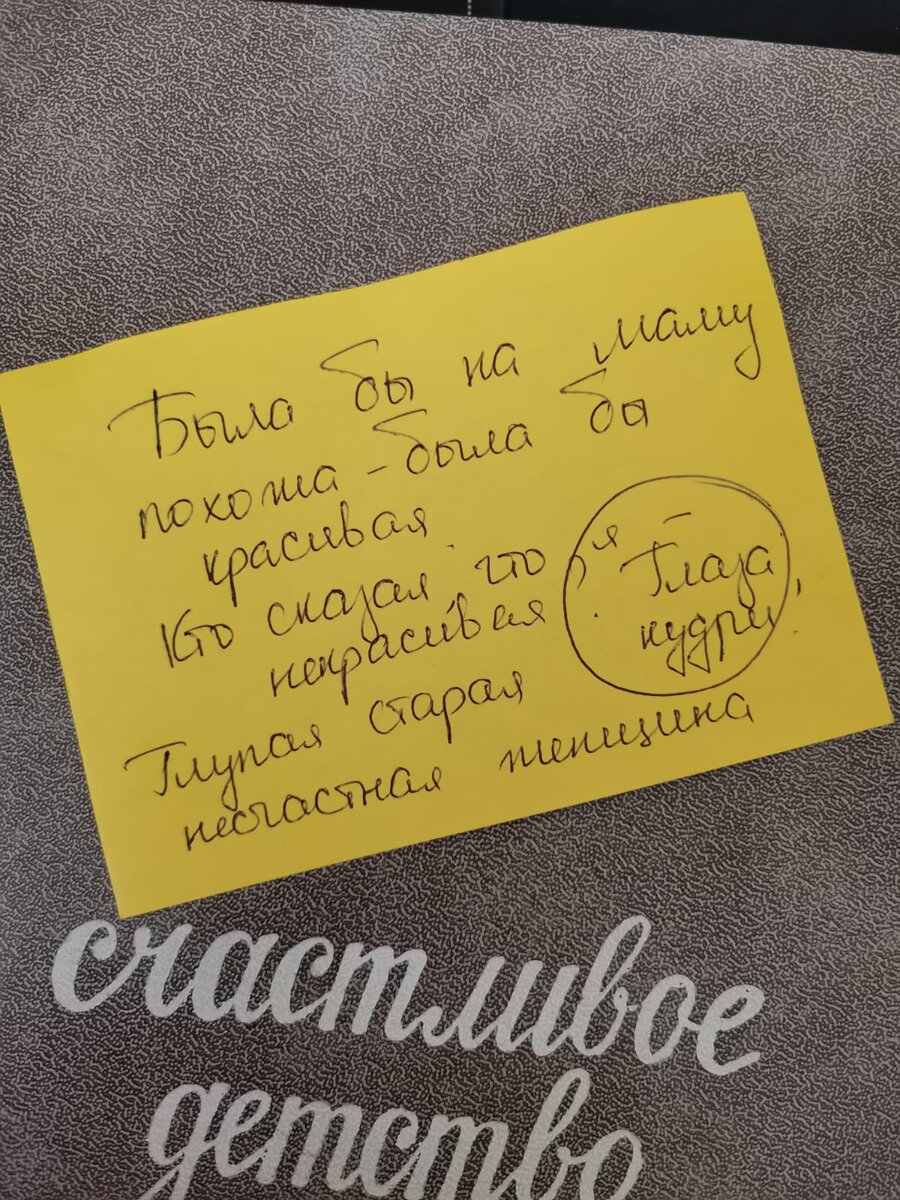 Была бы на маму
похожа - была бы
красивая.
Кто сказал, что я
некрасивая
Глаза
кудри,
Глупая старая
несчастная женщина
счастливое
детство